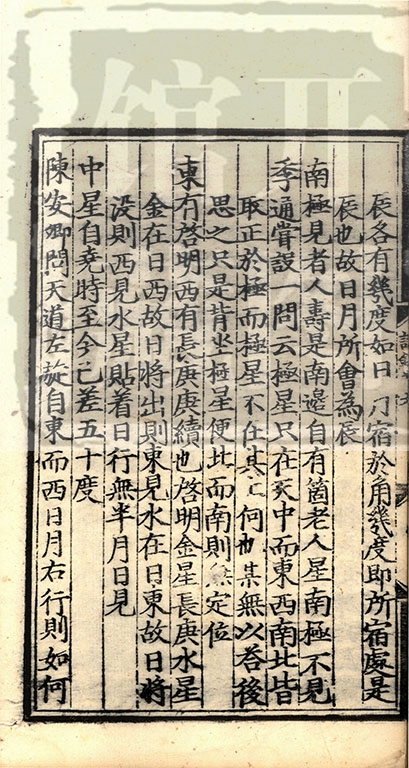 辰各有幾度如日月宿於角幾度即所宿處是
辰也故日月所會為辰
南極見者人壽是南邊自有箇老人星南極不見
季通嘗設一問云極星只在天中而東西南北皆
取正於極而極星不在其上何也某無以荅後
思之只是背坐極星便北而南則無定位
東有啓明西有長庚庚續也啓明金星長庚水星
金在日西故日將出則東見水在日東故日將
没則西見水星貼着日行無半月日見
中星自堯時至今已差五十度
陳安卿問天道左旋自東而西日月右行則如何